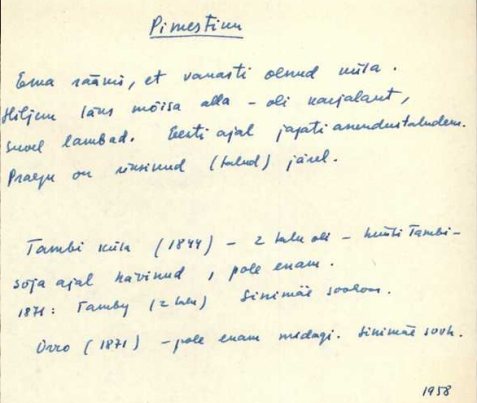 Pimestiku
Ema rääkis, et vanasti olnud küla.
Hiljem läks mõisa alla – oli karjalaut,
suvel lambad. Eesti ajal jagati asundustaludeks.
Praegu on üksikud (talud) järel.
Tambi küla (1844) – 2 talu oli – hüüti Tambi –
sõja ajal hävinud, pole enam.
1871: Tamby (2 talu) Sinimäe sovhoos.
Orro (1871) – pole enam midagi. Sinimäe sovh.
1958